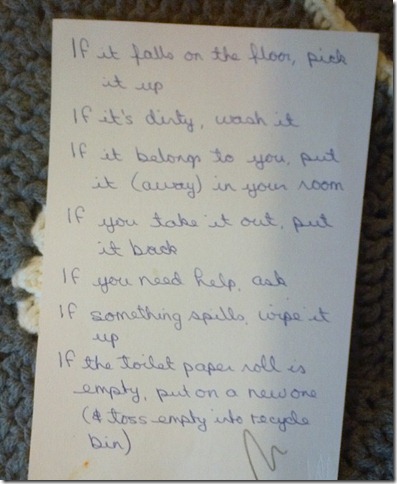 If it falls on the floor, pick
it up
If it's dirty, wash it
If it belongs to you, put
it (away) in your room
If you take it out, put
it back
If you need help, ask
If something spills, wipe it
up
If the toilet paper roll is
empty, put on a new one
(& toss empty into recycle
bin)